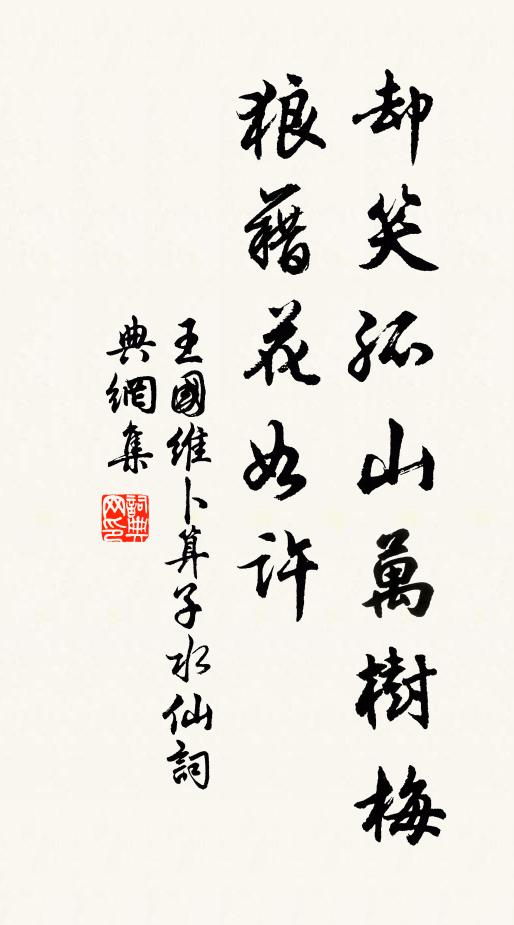 却笑孤山萬樹梅
狼藉花如許
王國維卜算子水仙詞
典網集
詞典網印